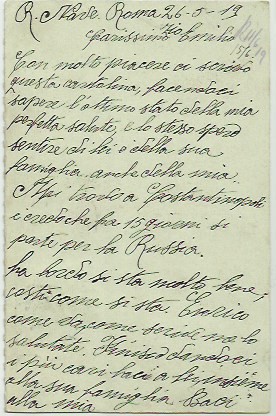 R. Nave. Roma 26-5-19
Carissimo Zio Emilio
15/6 19
Con molto piacere ci scrisso
questa cartolina, facendoci
sapere l'ottimo stato della mia
perfetta salute, e lo stesso spero
sentire di lei e della sua
famiglia. anche della mia.
Mi trovo a Costantinopoli
i credo che fra 15 giorni si
parte per la Russia.
ha bordo si sta molto bene,
costì come si sta. Enrico
come sta, come scrive me lo
salutate. Finisco dandoci
i più cari baci a
alla sua famiglia Baci
alla mia